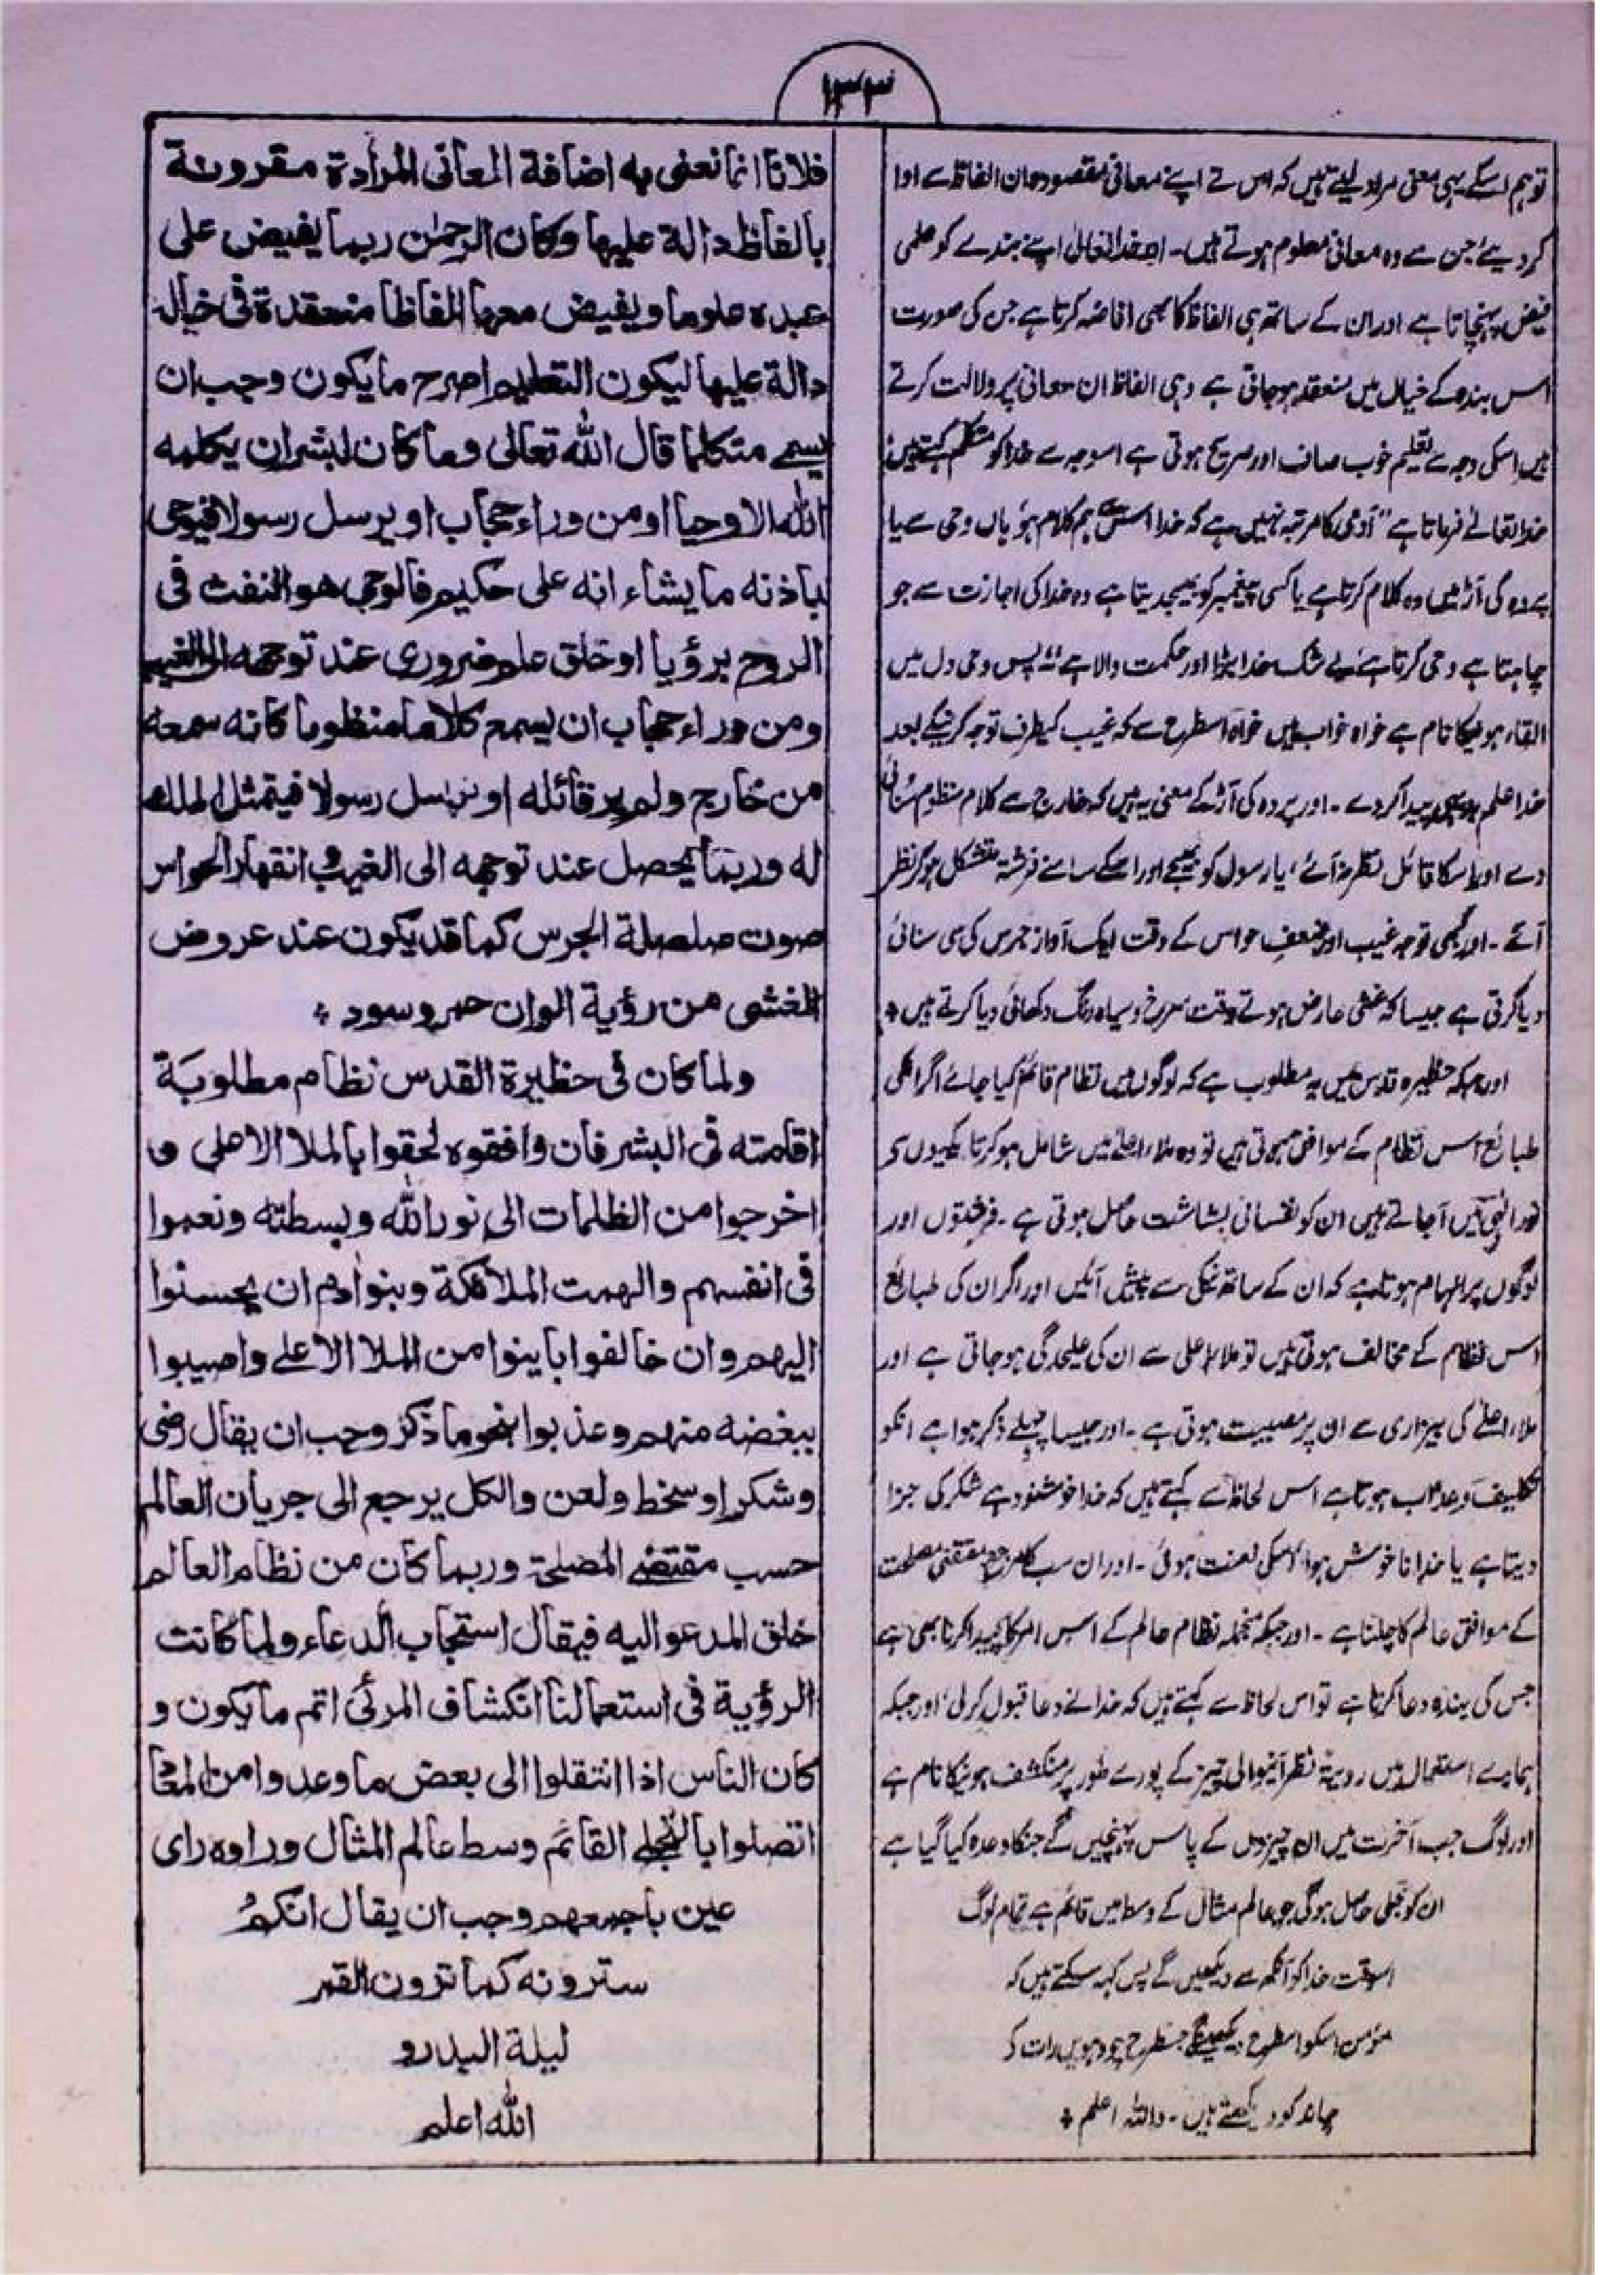 ۱۳۳
توہم اسکے یہی معنی مراد لیتے ہیں کہ اس نے اپنے معانی مقصودہ ان الفاظ سے ادا
کر دیئے جن سے وہ معانی معلوم ہوتے ہیں۔ اور خدا تعالیٰ اپنے بندے کو علمی
فیض پہنچاتا ہے اور ان کے ساتھ ہی الفاظ کا بھی افاضہ کرتا ہے جس کی صورت
اس بندہ کے خیال میں منعقد ہو جاتی ہے وہی الفاظ ان معانی پر دلالت کرتے
ہیں اسکی وجہ سے تعلیم خوب صاف اور صریح ہوتی ہے اسوجہ سے خدا کو متکلم کہتے ہیں
خدا تعالےٰ فرماتا ہے "آدمی کا مرتبہ نہیں ہے کہ خدا اس سے ہم کلام ہو ہاں وحی سے یا
پردہ کی آڑ میں وہ کلام کرتا ہے یا کسی پیغمبر کو بھیجدیتا ہے وہ خدا کی اجازت سے جو
چاہتا ہے وحی کرتا ہے بے شک خدا بڑا اور حکمت والا ہے" پس وحی دل میں
القاء ہونیکا نام ہے خواہ خواب میں خواہ اسطرح سے کہ غیب کیطرف توجہ کرنیکے بعد
خدا علم بدیہی پیدا کردے۔ اور پردہ کی آڑ کے معنی یہ ہیں کہ خارج سے کلام منظوم سنائی
دے اور اسکا قائل نظر نہ آئے، یا رسول کو بھیجے اور اسکے سامنے فرشتہ متشکل ہو کر نظر
آئے۔ اور کبھی توجہ غیب اور ضعف حواس کے وقت ایک آواز جرس کی سی سنائی
دیا کرتی ہے جیسا کہ غشی عارض ہوتے وقت سرخ و سیاہ رنگ دکھائی دیا کرتے ہیں ٭
اور جبکہ حظیرہ قدس میں یہ مطلوب ہے کہ لوگوں میں نظام قائم کیا جائے اگر انکی
طبائع اس نظام کے موافق ہوتی ہیں تو وہ ملاء اعلےٰ میں شامل ہو کر تاریکیوں سے
نور الٰہی میں آجاتے ہیں ان کو نفسانی بشاشت حاصل ہوتی ہے۔ فرشتوں اور
لوگوں پر الہام ہوتا ہے کہ ان کے ساتھ نیکی سے پیش آئیں اور اگر ان کی طبائع
اس نظام کے مخالف ہوتی ہیں تو ملاء اعلی سے ان کی علیحدگی ہو جاتی ہے اور
ملاء اعلےٰ کی بیزاری سے ان پر مصیبت ہوتی ہے۔ اور جیسا پہلے ذکر ہوا ہے انکو
تکلیف و عذاب ہوتا ہے اس لحاظ سے کہتے ہیں کہ خدا خوشنود ہے شکر کی جزا
دیتا ہے یا خدا ناخوش ہوا، اسکی لعنت ہوئی۔ اور ان سب کا مرجع مقتضی مصلحت
کے موافق عالم کا چلنا ہے۔ اور جبکہ منجملہ نظام عالم کے اس امر کا پیدا کرنا بھی ہے
جس کی بندہ دعا کرتا ہے تو اس لحاظ سے کہتے ہیں کہ خدا نے دعا قبول کرلی، اور جبکہ
ہمارے استعمال میں رویت نظر آنیوالی چیز کے پورے طور پر منکشف ہونیکا نام ہے
اور لوگ جب آخرت میں ان چیزوں کے پاس پہنچیں گے جنکا وعدہ کیا گیا ہے
ان کو تجلی حاصل ہوگی جو عالم مثال کے وسط میں قائم ہے تمام لوگ
اسوقت خدا کو آنکھ سے دیکھیں گے پس کہہ سکتے ہیں کہ
مومن اسکو اسطرح دیکھیں گے جسطرح چودہویں رات کے
چاند کو دیکھتے ہیں۔ واللہ اعلم ٭
فلانا انما نعنی به اضافة المعانی المرادة مقرونة
بالفاظ دالة علیها وکان الرحمٰن ربما یفیض علی
عبده علوما ویفیض معها الفاظا منعقدة فی خیاله
دالة علیها لیکون التعلیم اصرح مایکون وجب ان
یسمے متکلما قال الله تعالی وما کان لبشر ان یکلمه
الله الا وحیا او من وراء حجاب او یرسل رسولا فیوحی
باذنه ما یشاء انه علی حکیم فالوحی هو النفث فی
الروح برؤیا او خلق علم ضروری عند توجهه الی الغیب
ومن وراء حجاب ان یسمع کلاما منظوما کانه سمعه
من خارج ولم یر قائله او یرسل رسولا فیتمثل الملك
له وربما یحصل عند توجهه الی الغیب وانقهار الحواس
صوت صلصلة الجرس کما قد یکون عند عروض
الغشی من رؤیة الوان حمر وسود ٭
ولما کان فی حظیرة القدس نظام مطلوبة
اقامته فی البشر فان وافقوه لحقوا بالملا الاعلی و
اخرجوا من الظلمات الی نور الله وبسطته ونعموا
فی انفسهم والهمت الملائکة وبنوادم ان یحسنوا
الیهم وان خالفوا باینوا من الملا الاعلے واصیبوا
ببغضه منهم وعذبوا بنحو ما ذکر وجب ان یقال رضی
وشکر او سخط ولعن والکل یرجع الی جریان العالم
حسب مقتضے المصلحة وربما کان من نظام العالم
خلق المدعو الیه فیقال استجاب الدعاء ولما کانت
الرؤیة فی استعمالنا انکشاف المرئی اتم ما یکون و
کان الناس اذا انتقلوا الی بعض ما وعدوا من المعاد
اتصلوا بالتجلے القائم وسط عالم المثال وراوه رای
عین باجمعهم وجب ان یقال انکم
سترونه کما ترون القمر
لیلة البدر و
الله اعلم